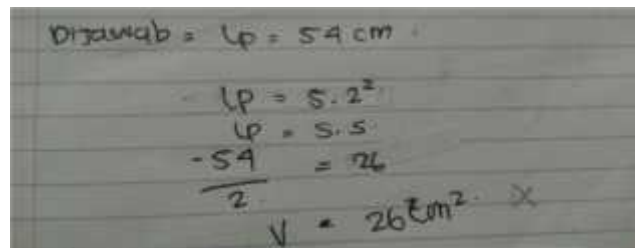 Dijawab = Lp = 54 cm.
Lp = 5.2²
Lp = 5.5
-54/2 = 26
V = 26 cm². X